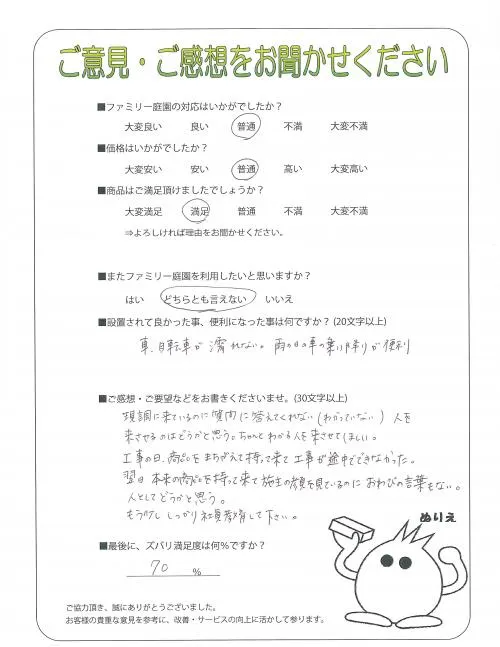 ご意見・ご感想をお聞かせください
■ファミリー庭園の対応はいかがでしたか？
大変良い　良い　普通　不満　大変不満
■価格はいかがでしたか？
大変安い　安い　普通　高い　大変高い
■商品はご満足頂けましたでしょうか？
大変満足　満足　普通　不満　大変不満
⇒よろしければ理由をお聞かせください。
■またファミリー庭園を利用したいと思いますか？
はい　どちらとも言えない　いいえ
■設置されて良かった事、便利になった事は何ですか？(20文字以上)
車、自転車が濡れない。雨の日の車の乗り降りが便利
■ご感想・ご要望などをお書きくださいませ。(30文字以上)
現調に来ているのに質問に答えてくれない(わかっていない)人を
来させるのはどうかと思う。ちゃんとわかる人を来させてほしい。
工事の日、商品をまちがえて持って来て工事が途中でできなかった。
翌日本来の商品を持って来て施主の顔を見ているのにおわびの言葉もない。
人としてどうかと思う。
もう少ししっかり社員教育して下さい。
ぬりえ
■最後に、ズバリ満足度は何％ですか？
70　％
ご協力頂き、誠にありがとうございました。
お客様の貴重な意見を参考に、改善・サービスの向上に活かして参ります。